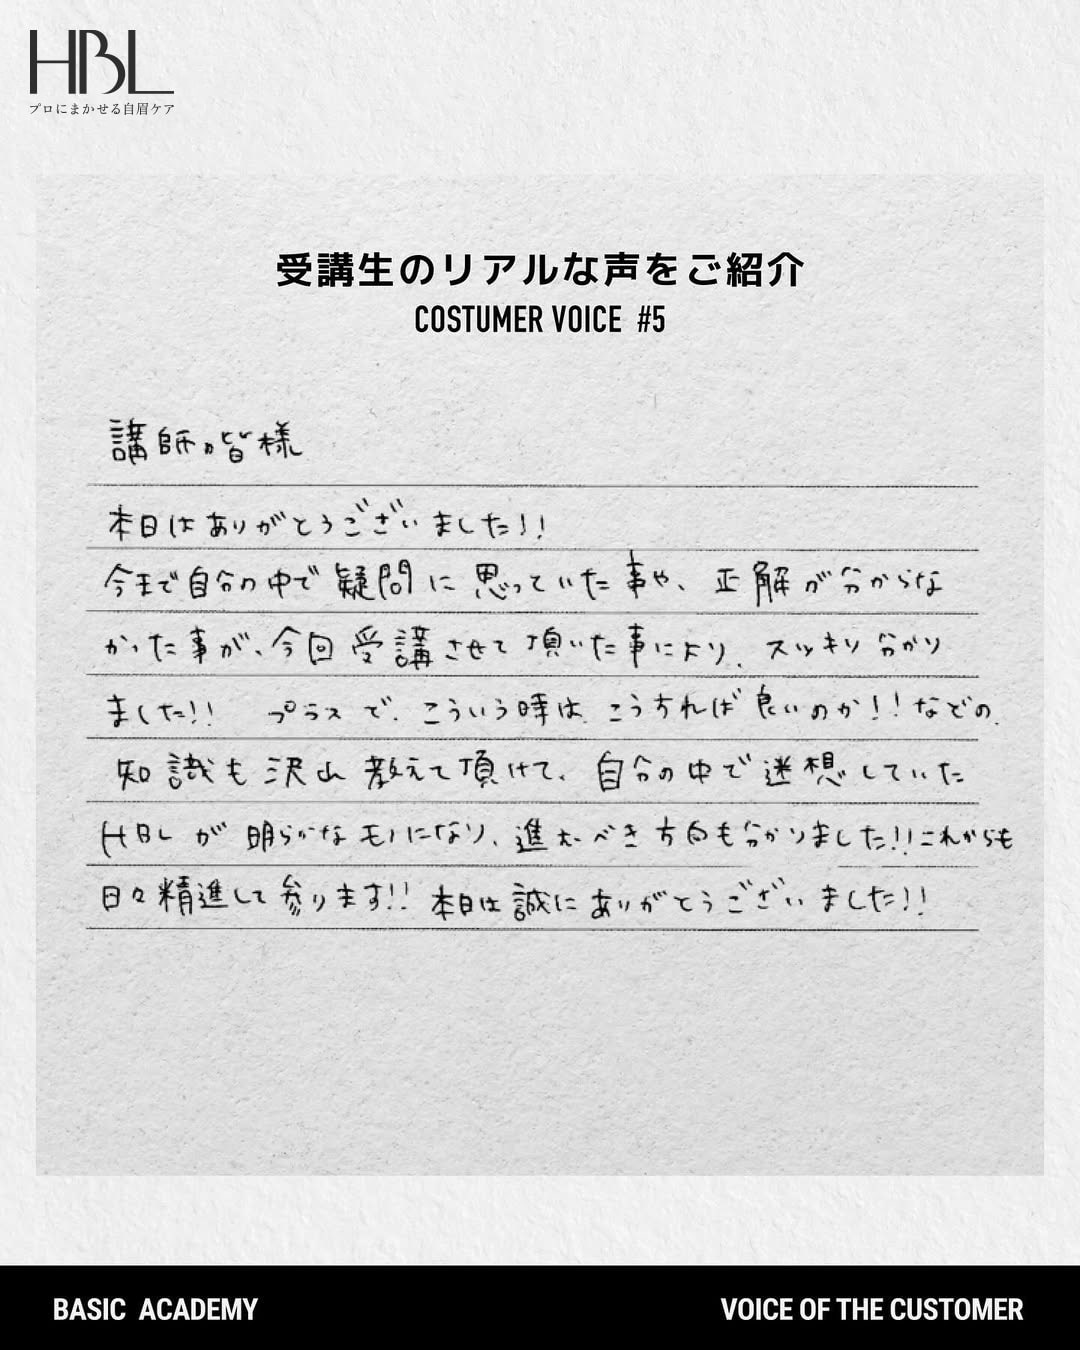 HBL
プロにまかせる自眉ケア
受講生のリアルな声をご紹介
COSTUMER VOICE #5
講師の皆様
本日はありがとうございました!!
今まで自分の中で疑問に思っていた事や、正解が分からな
かった事が、今回受講させて頂いた事により、スッキリ分かり
ました!! プラスで、こういう時は、こうすれば良いのか!!などの、
知識も沢山教えて頂けて、自分の中で迷想していた
HBLが明らかなモノになり、進むべき方向も分かりました!!これからも
日々精進して参ります!! 本日は誠にありがとうございました!!
BASIC ACADEMY
VOICE OF THE CUSTOMER